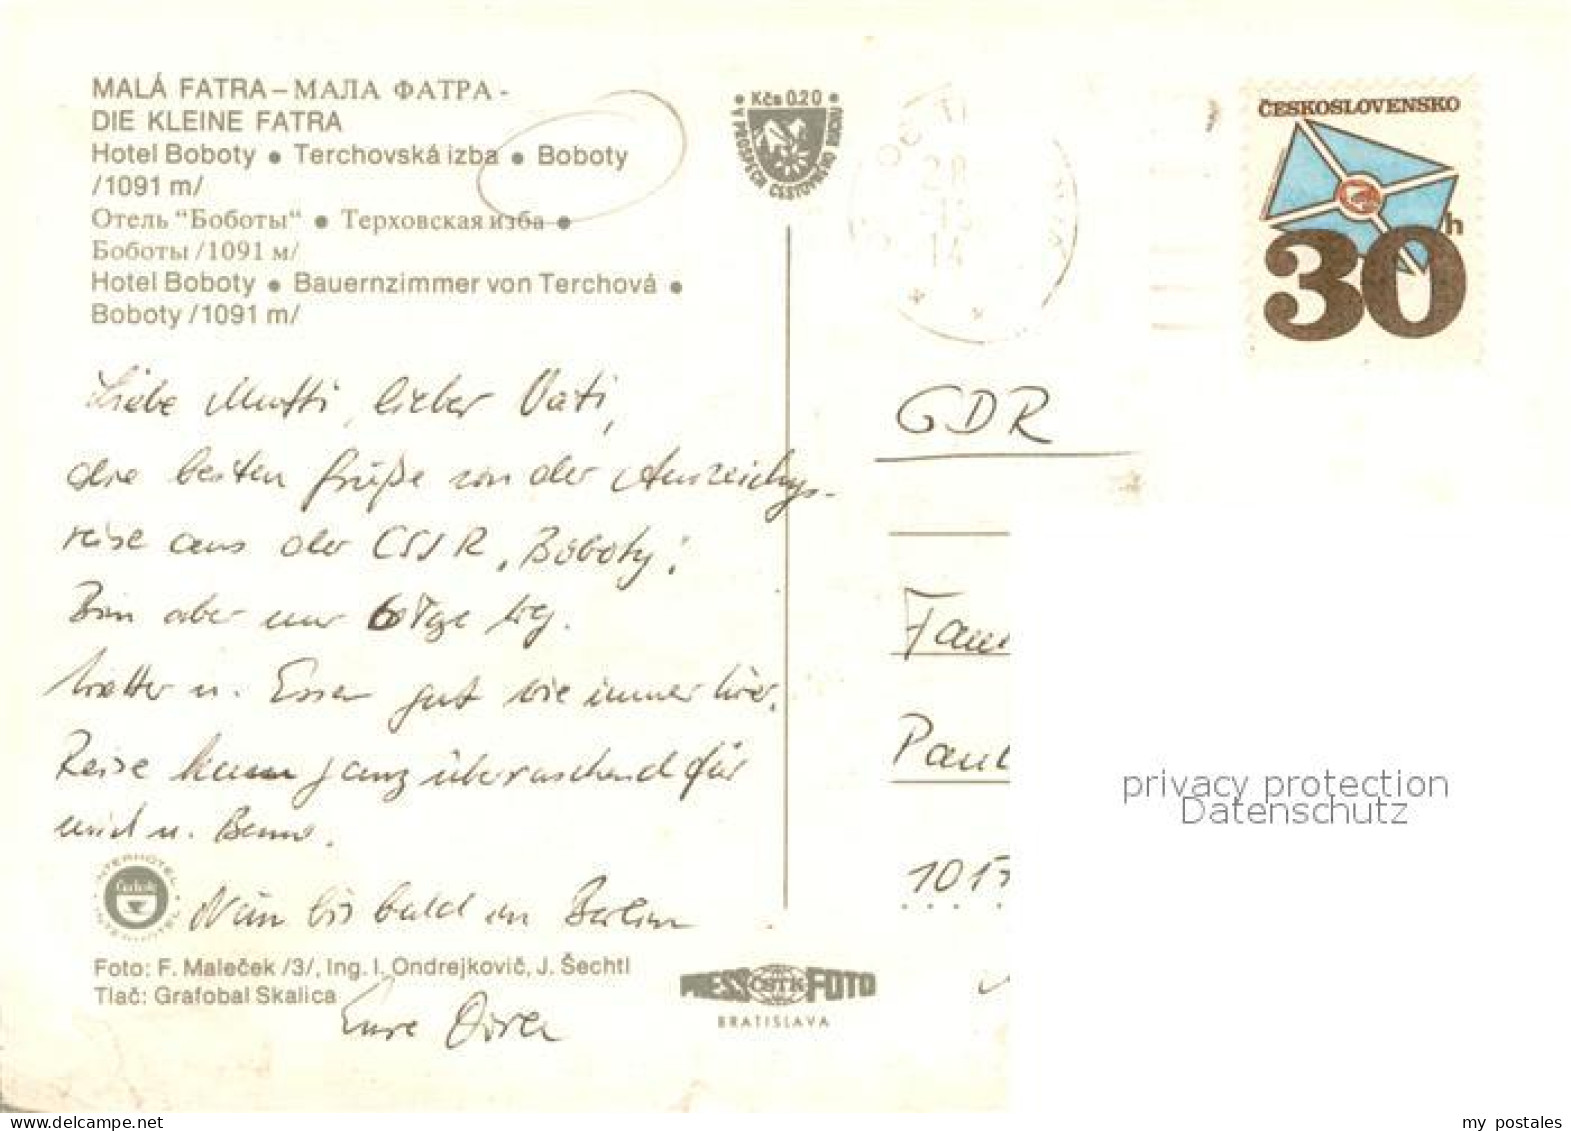 MALÁ FATRA – МАЛА ФАТРА -
DIE KLEINE FATRA
Hotel Boboty ● Terchovská izba ● Boboty
/1091 m/
Отель "Боботы" ● Терховская изба ●
Боботы /1091 м/
Hotel Boboty ● Bauernzimmer von Terchová ●
Boboty /1091 m/
Kčs 0.20
V PROSPECH CESTOVNÉHO RUCHU
ČESKOSLOVENSKO
30h
Liebe Mutti, lieber Vati,
die besten Grüße von der Auszeichgs-
reise aus der CSSR „Boboty".
Bin aber nur 6 Tge
Wetter u. Essen gut wie immer hier.
Reise kam ganz überraschend für
mich u.
Nun bis bald in Berlin
Eure
GDR
Fam
Paul
101
privacy protection
Datenschutz
INTERHOTEL
Čedok
INTERHOTEL
Foto: F. Maleček /3/, Ing. I. Ondrejkovič, J. Šechtl
Tlač: Grafobal Skalica
PRESS ČSTK FOTO
BRATISLAVA
my postales